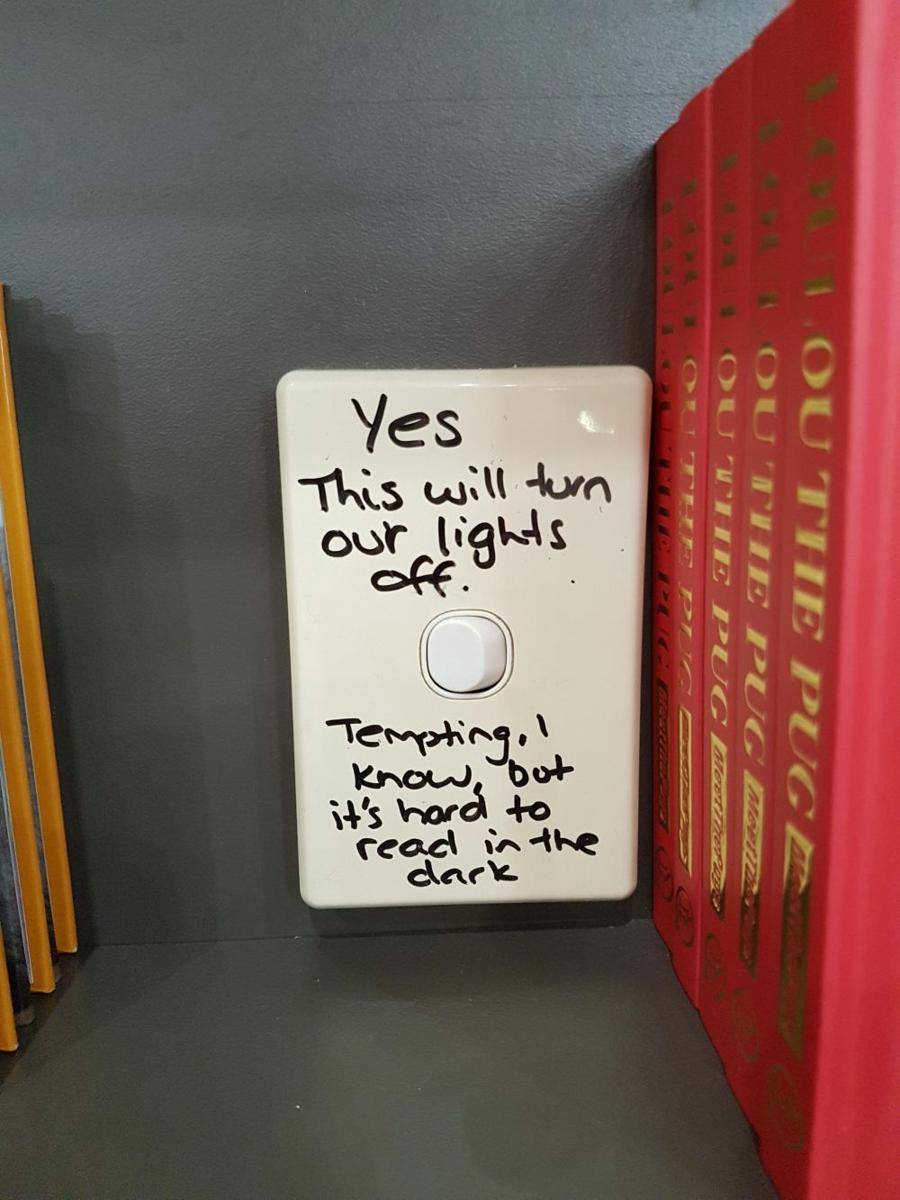 Yes
This will turn
our lights
off.
Tempting, I
know, but
it's hard to
read in the
dark
LOU THE PUG
LOU THE PUG
LOU THE PUG
LOU THE PUG
LOU THE PUG